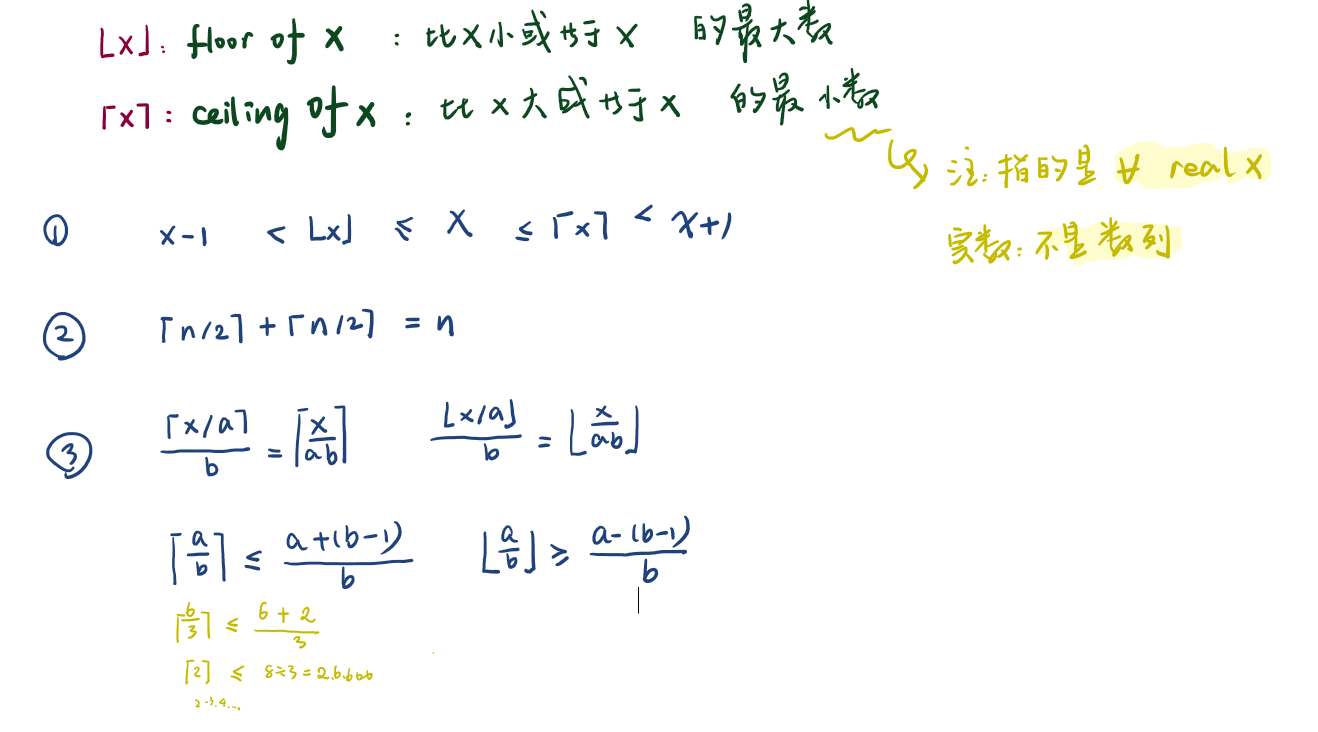 ⌊x⌋: floor of x : 比x小或等于x 的最大数
⌈x⌉: ceiling of x : 比x大或等于x 的最小数
注:指的是 ∀ real x
实数:不是数列
① x-1 < ⌊x⌋ ≤ x ≤ ⌈x⌉ < x+1
② ⌈n/2⌉ + ⌈n/2⌉ = n
③ ⌈x/a⌉/b = ⌈x/ab⌉ ⌊x/a⌋/b = ⌊x/ab⌋
⌈a/b⌉ ≤ a+(b-1)/b ⌊a/b⌋ ≥ a-(b-1)/b
⌈6/3⌉ ≤ 6+2/3
⌈2⌉ ≤ 8÷3=2.6.666
2.3.4...